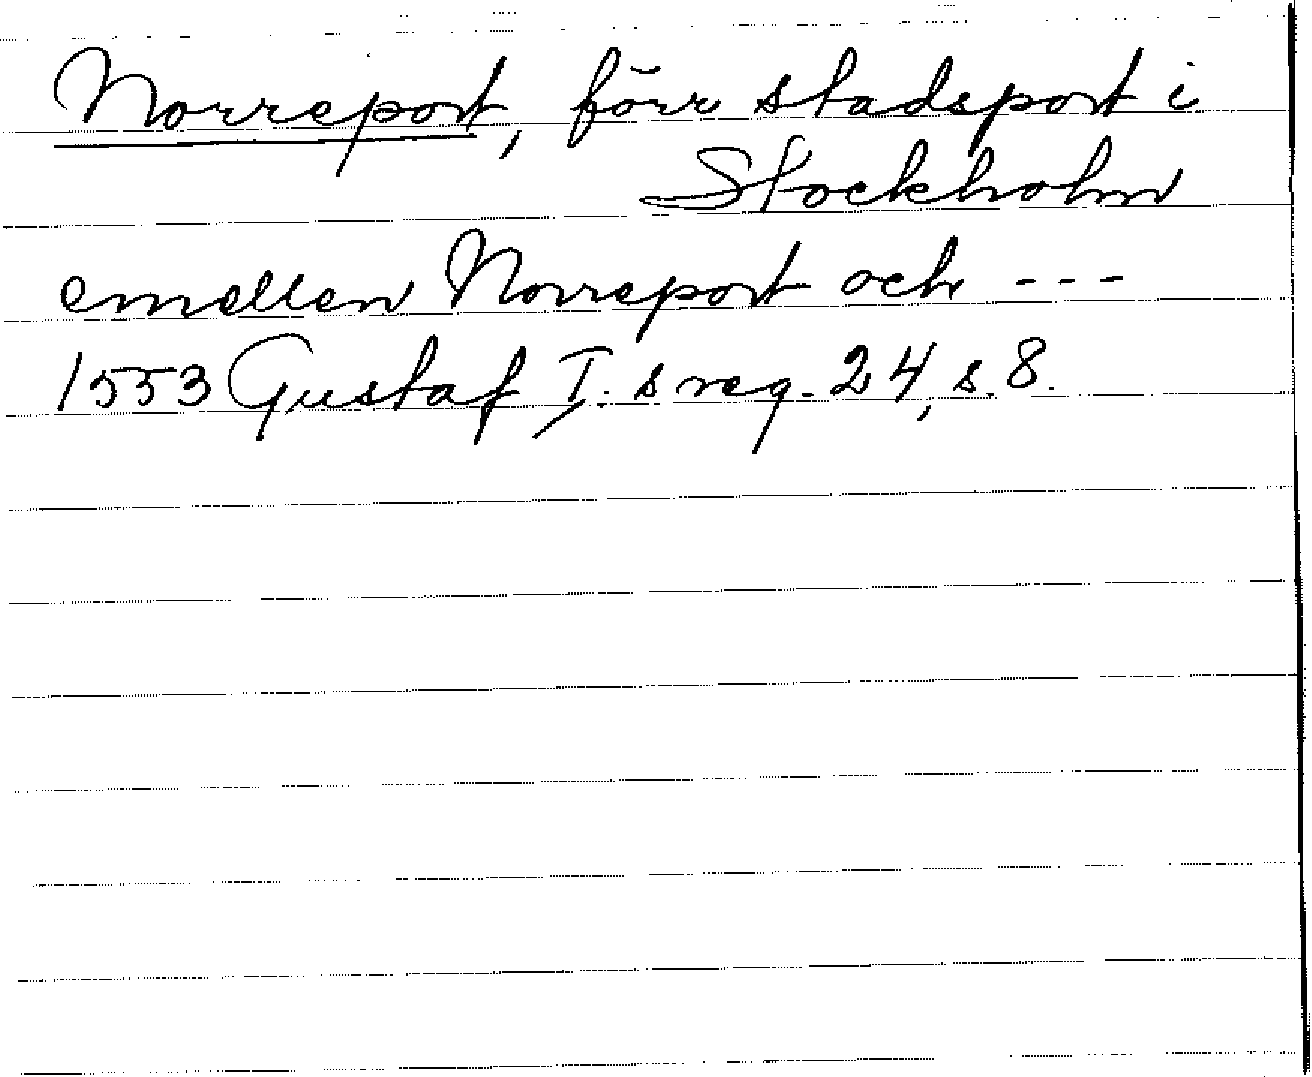 Norreport, förr stadsport i
Stockholm
emellen Norreport och ---
1553 Gustaf I.s reg. 24, s. 8.